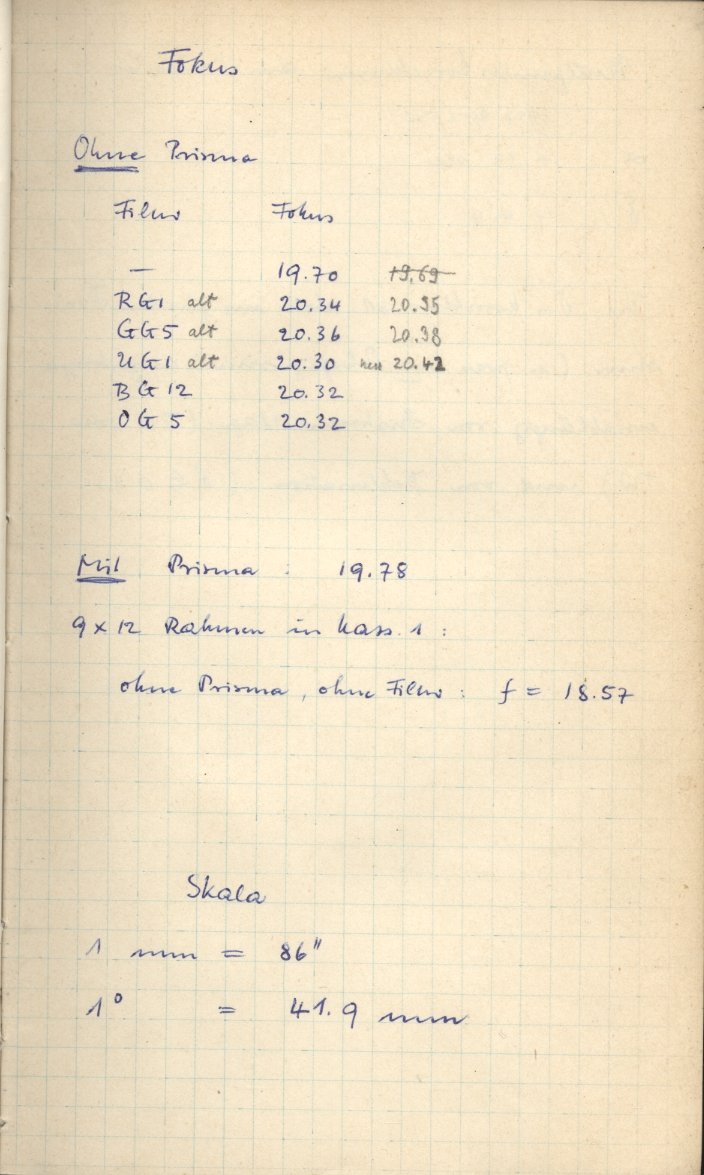 Fokus
Ohne Prisma
Filter Fokus
— 19.70 19.69
RG1 alt 20.34 20.35
GG5 alt 20.36 20.38
UG1 alt 20.30 neu 20.42
BG 12 20.32
OG 5 20.32
Mit Prisma : 19.78
9 x 12 Rahmen in Kass. 1 :
ohne Prisma, ohne Filter : f = 18.57
Skala
1 mm = 86"
1° = 41.9 mm